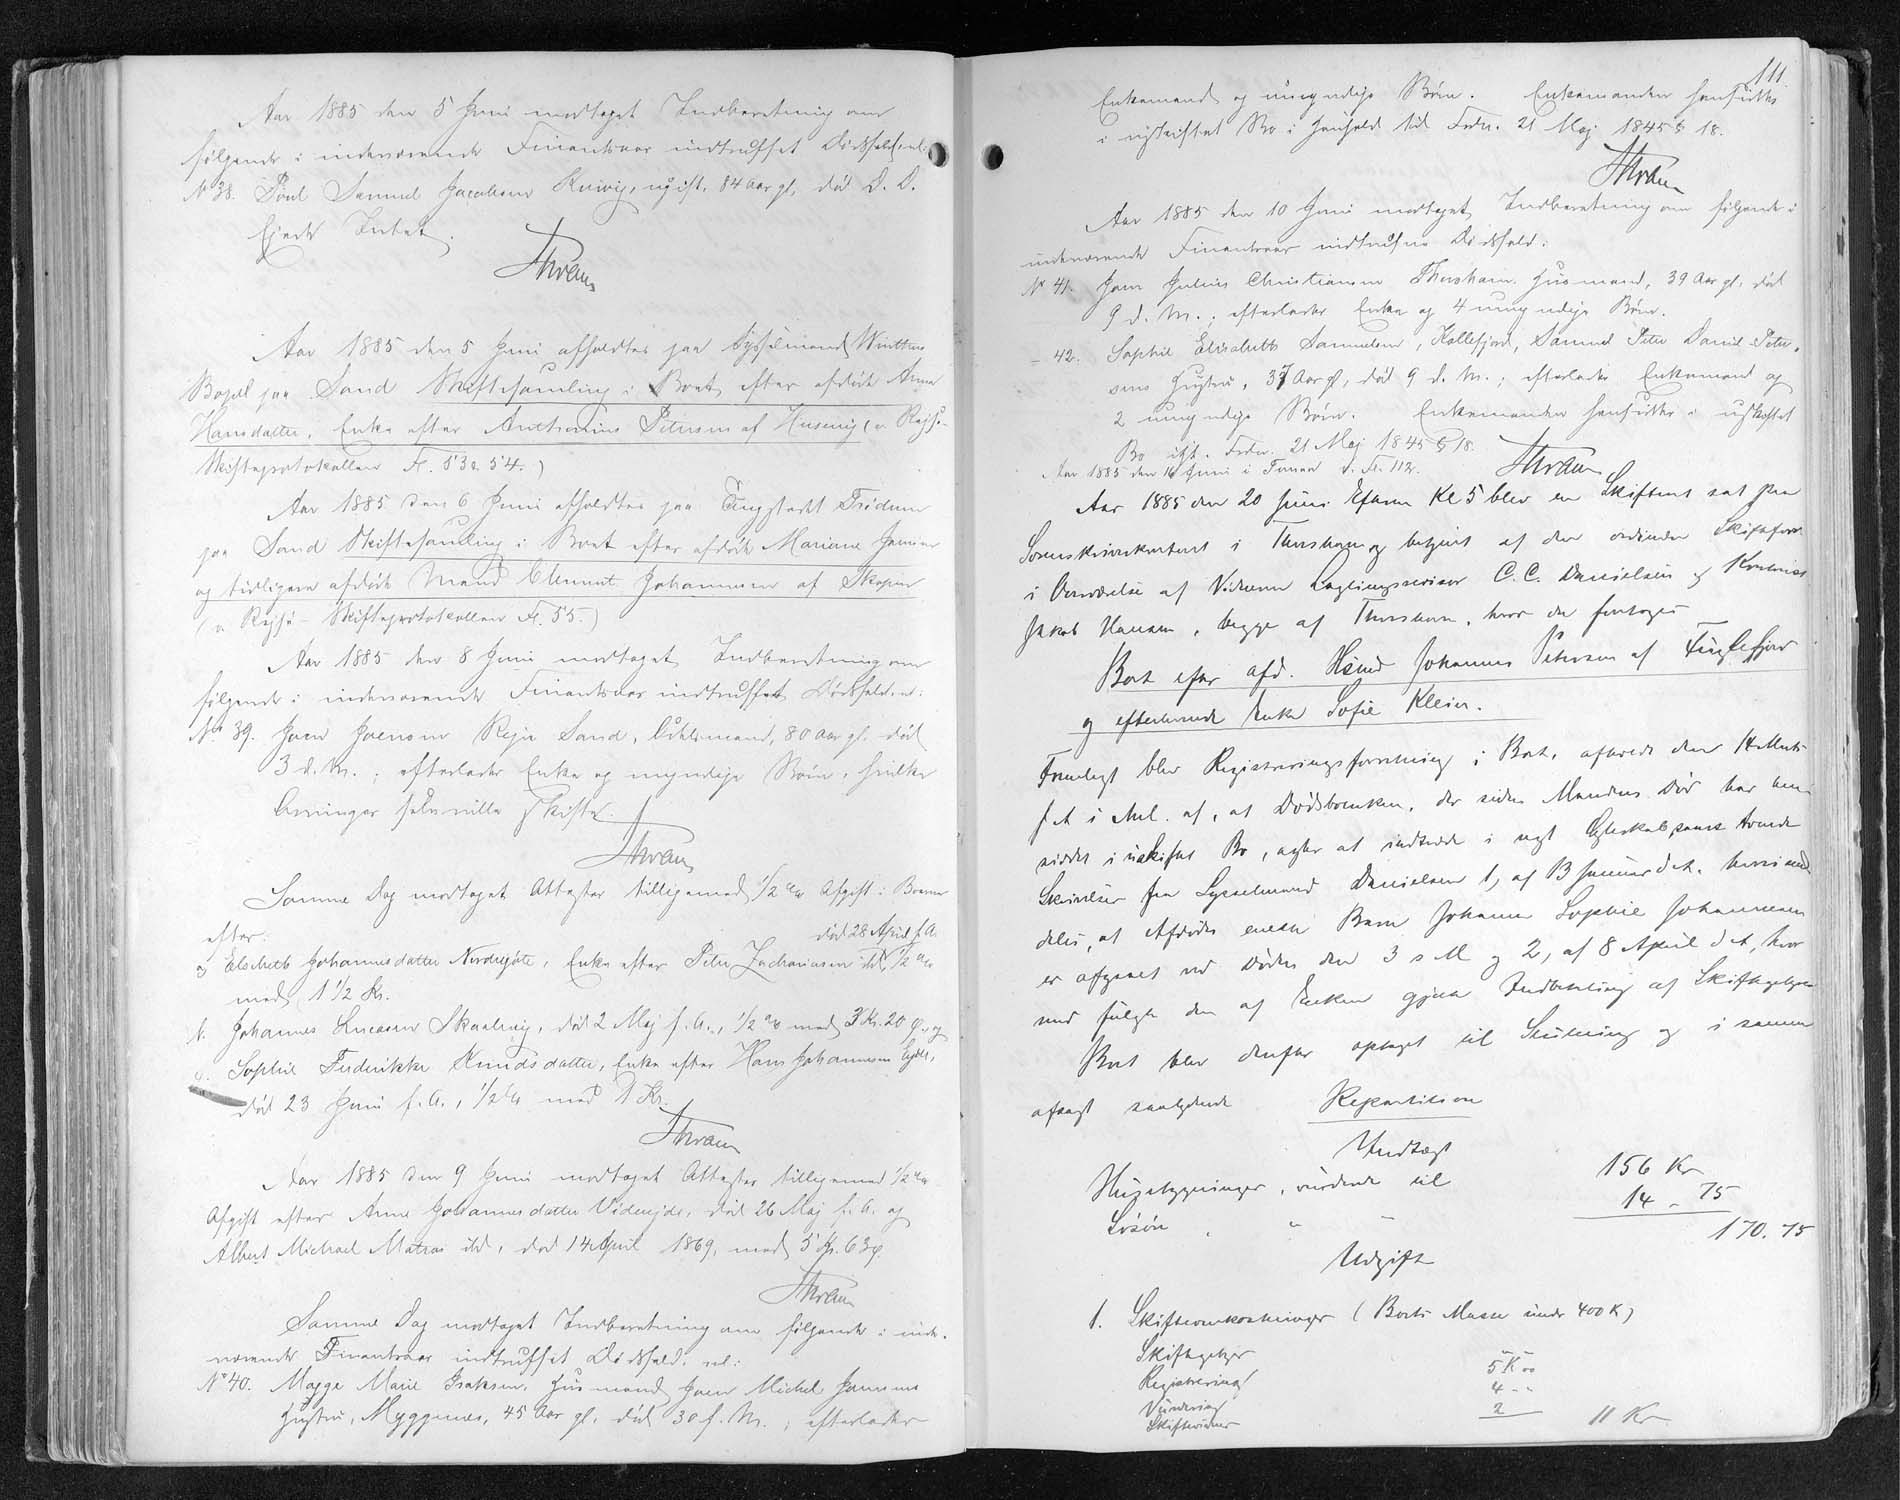 Aar 1885 den 5 Juni modtaget Indberetning om
følgende i indeværende Finantsaar indtruffet Dødsfald, nl:
No 38. Poul Samuel Jacobsen Kvivig, ugift, 84 Aar gl., død D. D.
Ejede Intet.
Aar 1885 den 5 Juni afholdtes paa Sysselmand Winthers
Bopæl paa Sand Skiftesamling i Boet efter afdøde Anna
Hansdatter, Enke efter Anthonius Petersen af Husevig (v. Rejse-
Skifteprotokollen Fl. 53 & 54.)
Aar 1885 den 6 Juni afholdtes paa Tingstedet Trødum
paa Sand Skiftesamling i Boet efter afdøde Mariane
og tidligere afdøde Mand Clement Johannesen af Skopen
(v. Rejse-Skifteprotokollen Fl. 55.)
Aar 1885 den 8 Juni modtaget Indberetning om
følgende i indeværende Finantsaar indtruffet Dødsfald, nl:
No 39. Joen Joensen Rejn Sand, Odelsmand, 80 Aar gl. død
3 d. M.; efterlader Enke og myndige Børn, hvilke
Arvinger selv ville skifte.
Samme Dag modtaget Attester tilligemed 1/2 % Afgift i Boerne
efter:
død 28 April f. A.
a, Elsebeth Johannesdatter Nordregøte, Enke efter Peter Zachariasen ibd, 1/2 %
med 1 1/2 Kr.
b. Johannes Lucasen Skaalevig, død 2 Maj f. A., 1/2 % med 3 Kr. 20 Ø., og
c. Sophie Frederikke Knudsdatter, Enke efter Hans Johannesen Ejde,
død 23 Juni f. A., 1/2 % med 1 Kr.
Aar 1885 den 9 Juni modtaget Attester tilligemed 1/2 %
Afgift efter Anne Johannesdatter Viderejde, død 26 Maj f. A. og
Albert Michael Matras ibd, død 14 April 1869, med 5 Kr. 63 Ø.
Samme Dag modtaget Indberetning om følgende i inde-
værende Finantsaar indtruffet Dødsfald, nl:
No 40. Magge Marie Isaksen, Husmand Joen Michel
Hustru, Myggenes, 45 Aar gl., død 30 f. M.; efterlader
111
Enkemand og umyndige Børn. Enkemanden hensidder
i uskiftet Bo i Henhold til Frdn. 21 Maj 1845 § 18.
Aar 1885 den 10 Juni modtaget Indberetning om følgende i
indeværende Finantsaar indtrufne Dødsfald:
No 41. Joen Julius Christiansen Thorshavn, Husmand, 39 Aar gl. død
9 d. M.; efterlader Enke og 4 umyndige Børn.
- 42. Sophie Elisabeth Samuelsen, Kollefjord, Samuel Peter Daniel Peter-
sens Hustru, 37 Aar gl., død 9 d. M.; efterlader Enkemand og
2 umyndige Børn. Enkemanden hensidder i uskiftet
Bo iflg. Frdn. 21 Maj 1845 § 18.
Aar 1885 den 16 Juni i v. Fl. 112.
Aar 1885 den 20 Juni Efterm Kl 5 blev en Skifteret sat paa
Sorenskriverkontoret i Thorshavn og betjent af den ordinære Skifteforv.
i Overværelse af Vidnerne Lagtingsrevisor C. C. Danielsen og Kontorist
Jakob Hansen, begge af Thorshavn, hvor da foretoges
Boet efter afd. Johannes Petersen af Fuglefjord
og efterlevende Enke Sofie Klein.
Fremlagt blev Registreringsforretning i Boet, afholdt den 14 Marts
f A i Anl. af, at Dødsboenken, der siden Mandens Død har hen-
siddet i uskiftet Bo, agter at indtræde i nyt Ægteskab, samt tvende
Skrivelser fra Sysselmand Danielsen 1, af 13 Januar d A. hvori med-
deles, at Afdødes eneste Barn Johanne Sophie Johannesen
er afgaaet ved Døden den 3 s M og 2, af 8 April d A, hvor
med fulgte den af Enken gjorte Indbetaling af Skiftegebyr
Boet blev derefter optaget til Slutning og i samme
afsagt saalydende Repartition
Indtægt
Husebygninger, vurderede til 156 Kr
Løsøre " " 14 - 75
170. 75
Udgift
1. Skifteomkostninger (Boets Masse under 400 K)
Skiftegebyr 5 K "
Registrering 4 - "
Vurdering 2
Skiftevidner 11 Kr